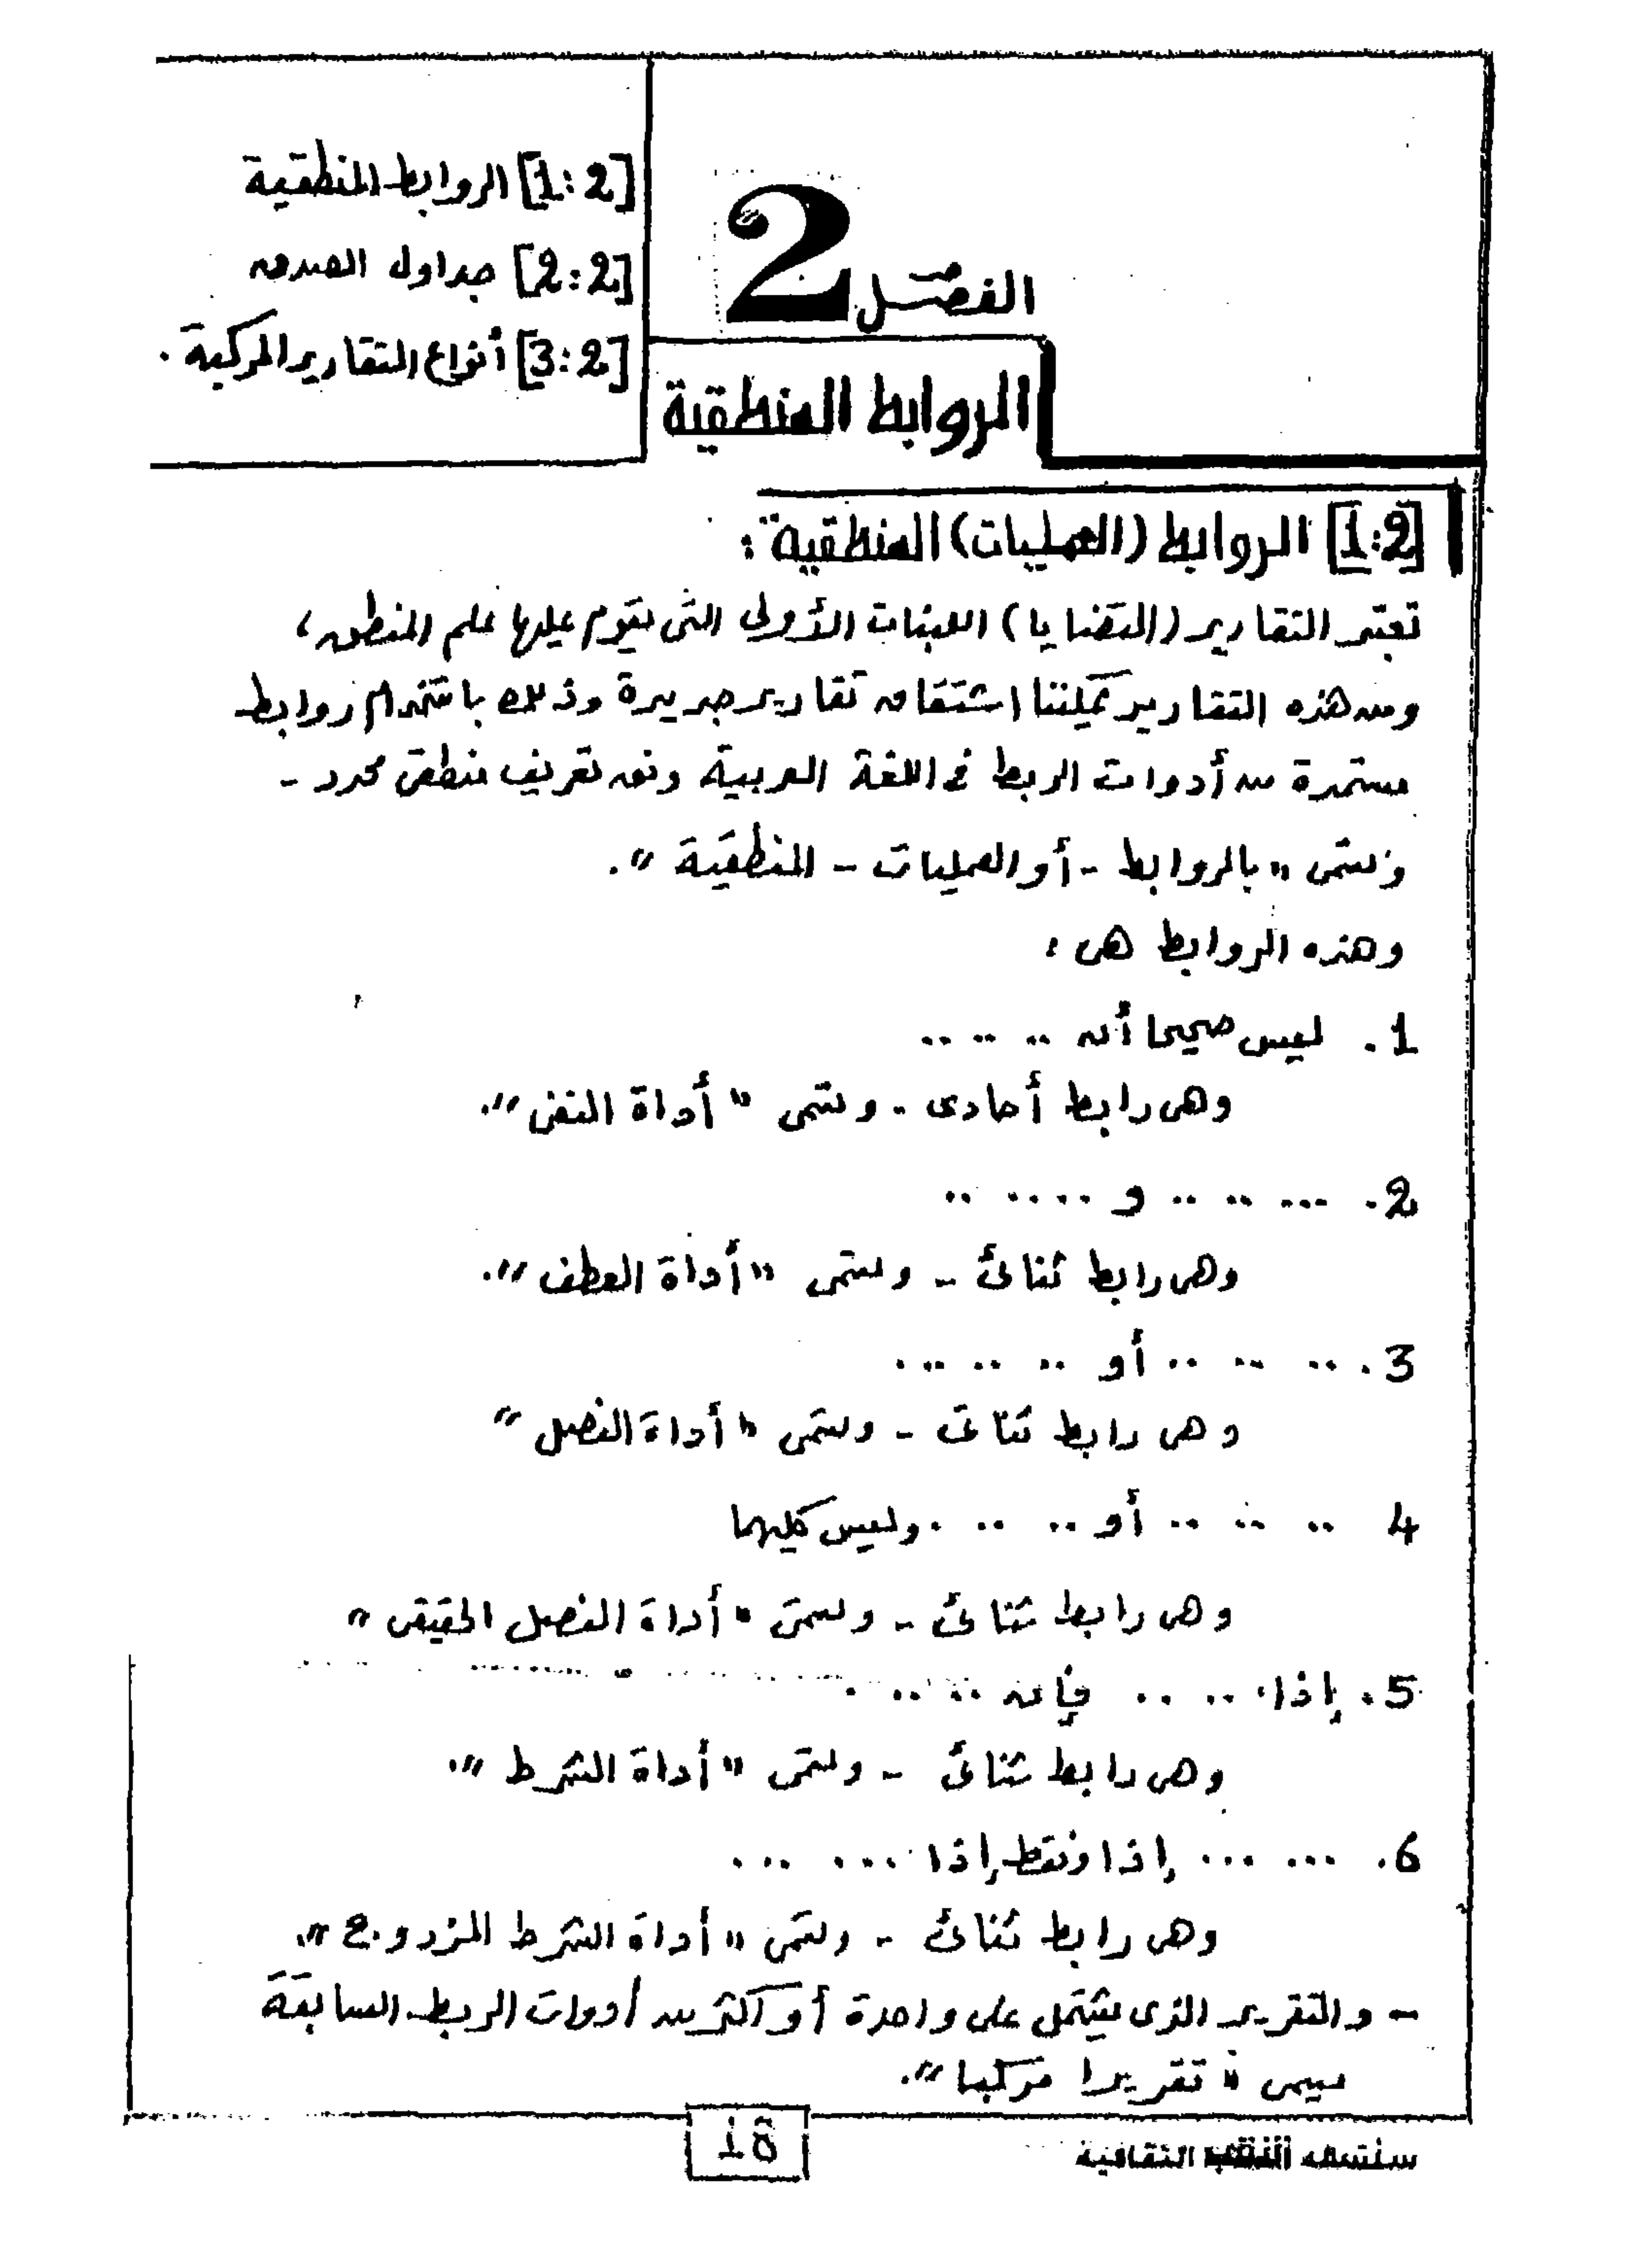 الفصل 2
الروابط المنطقية
[1:2] الروابط المنطقية
[2:2] جداول الصدق
[3:2] أنواع التقارير المركبة .
[1:2] الروابط (العمليات) المنطقية :
تعتبر التقارير (القضايا) اللبنات الأولى التى يقوم عليها علم المنطق ،
ومن هذه التقارير يمكننا اشتقاق تقارير جديدة وذلك باستخدام روابط
مستمدة من أدوات الربط فى اللغة العربية وفق تعريف منطقى محدد -
وتسمى " بالروابط - أو العمليات - المنطقية ".
وهذه الروابط هى :
1. ليس صحيحا أن .. .. ..
وهى رابط أحادى - وتسمى " أداة النفى ".
2. ... .. .. و .... ..
وهى رابط ثنائى - وتسمى " أداة العطف ".
3. .. .. .. أو .. .. .. .
وهى رابط ثنائى - وتسمى " أداة الفصل "
4 .. .. .. أو .. .. . وليس كليهما
وهى رابط ثنائى - وتسمى " أداة الفصل الحقيقى "
5. إذا .. .. فإن .. .. .
وهى رابط ثنائى - وتسمى " أداة الشرط ".
6. ... ... إذا وفقط إذا ... ...
وهى رابط ثنائى - وتسمى " أداة الشرط المزدوج ".
- والتقرير الذى يشتمل على واحدة أو أكثر من أدوات الربط السابقة
يسمى " تقريرا مركبا ".
18
الثقافية